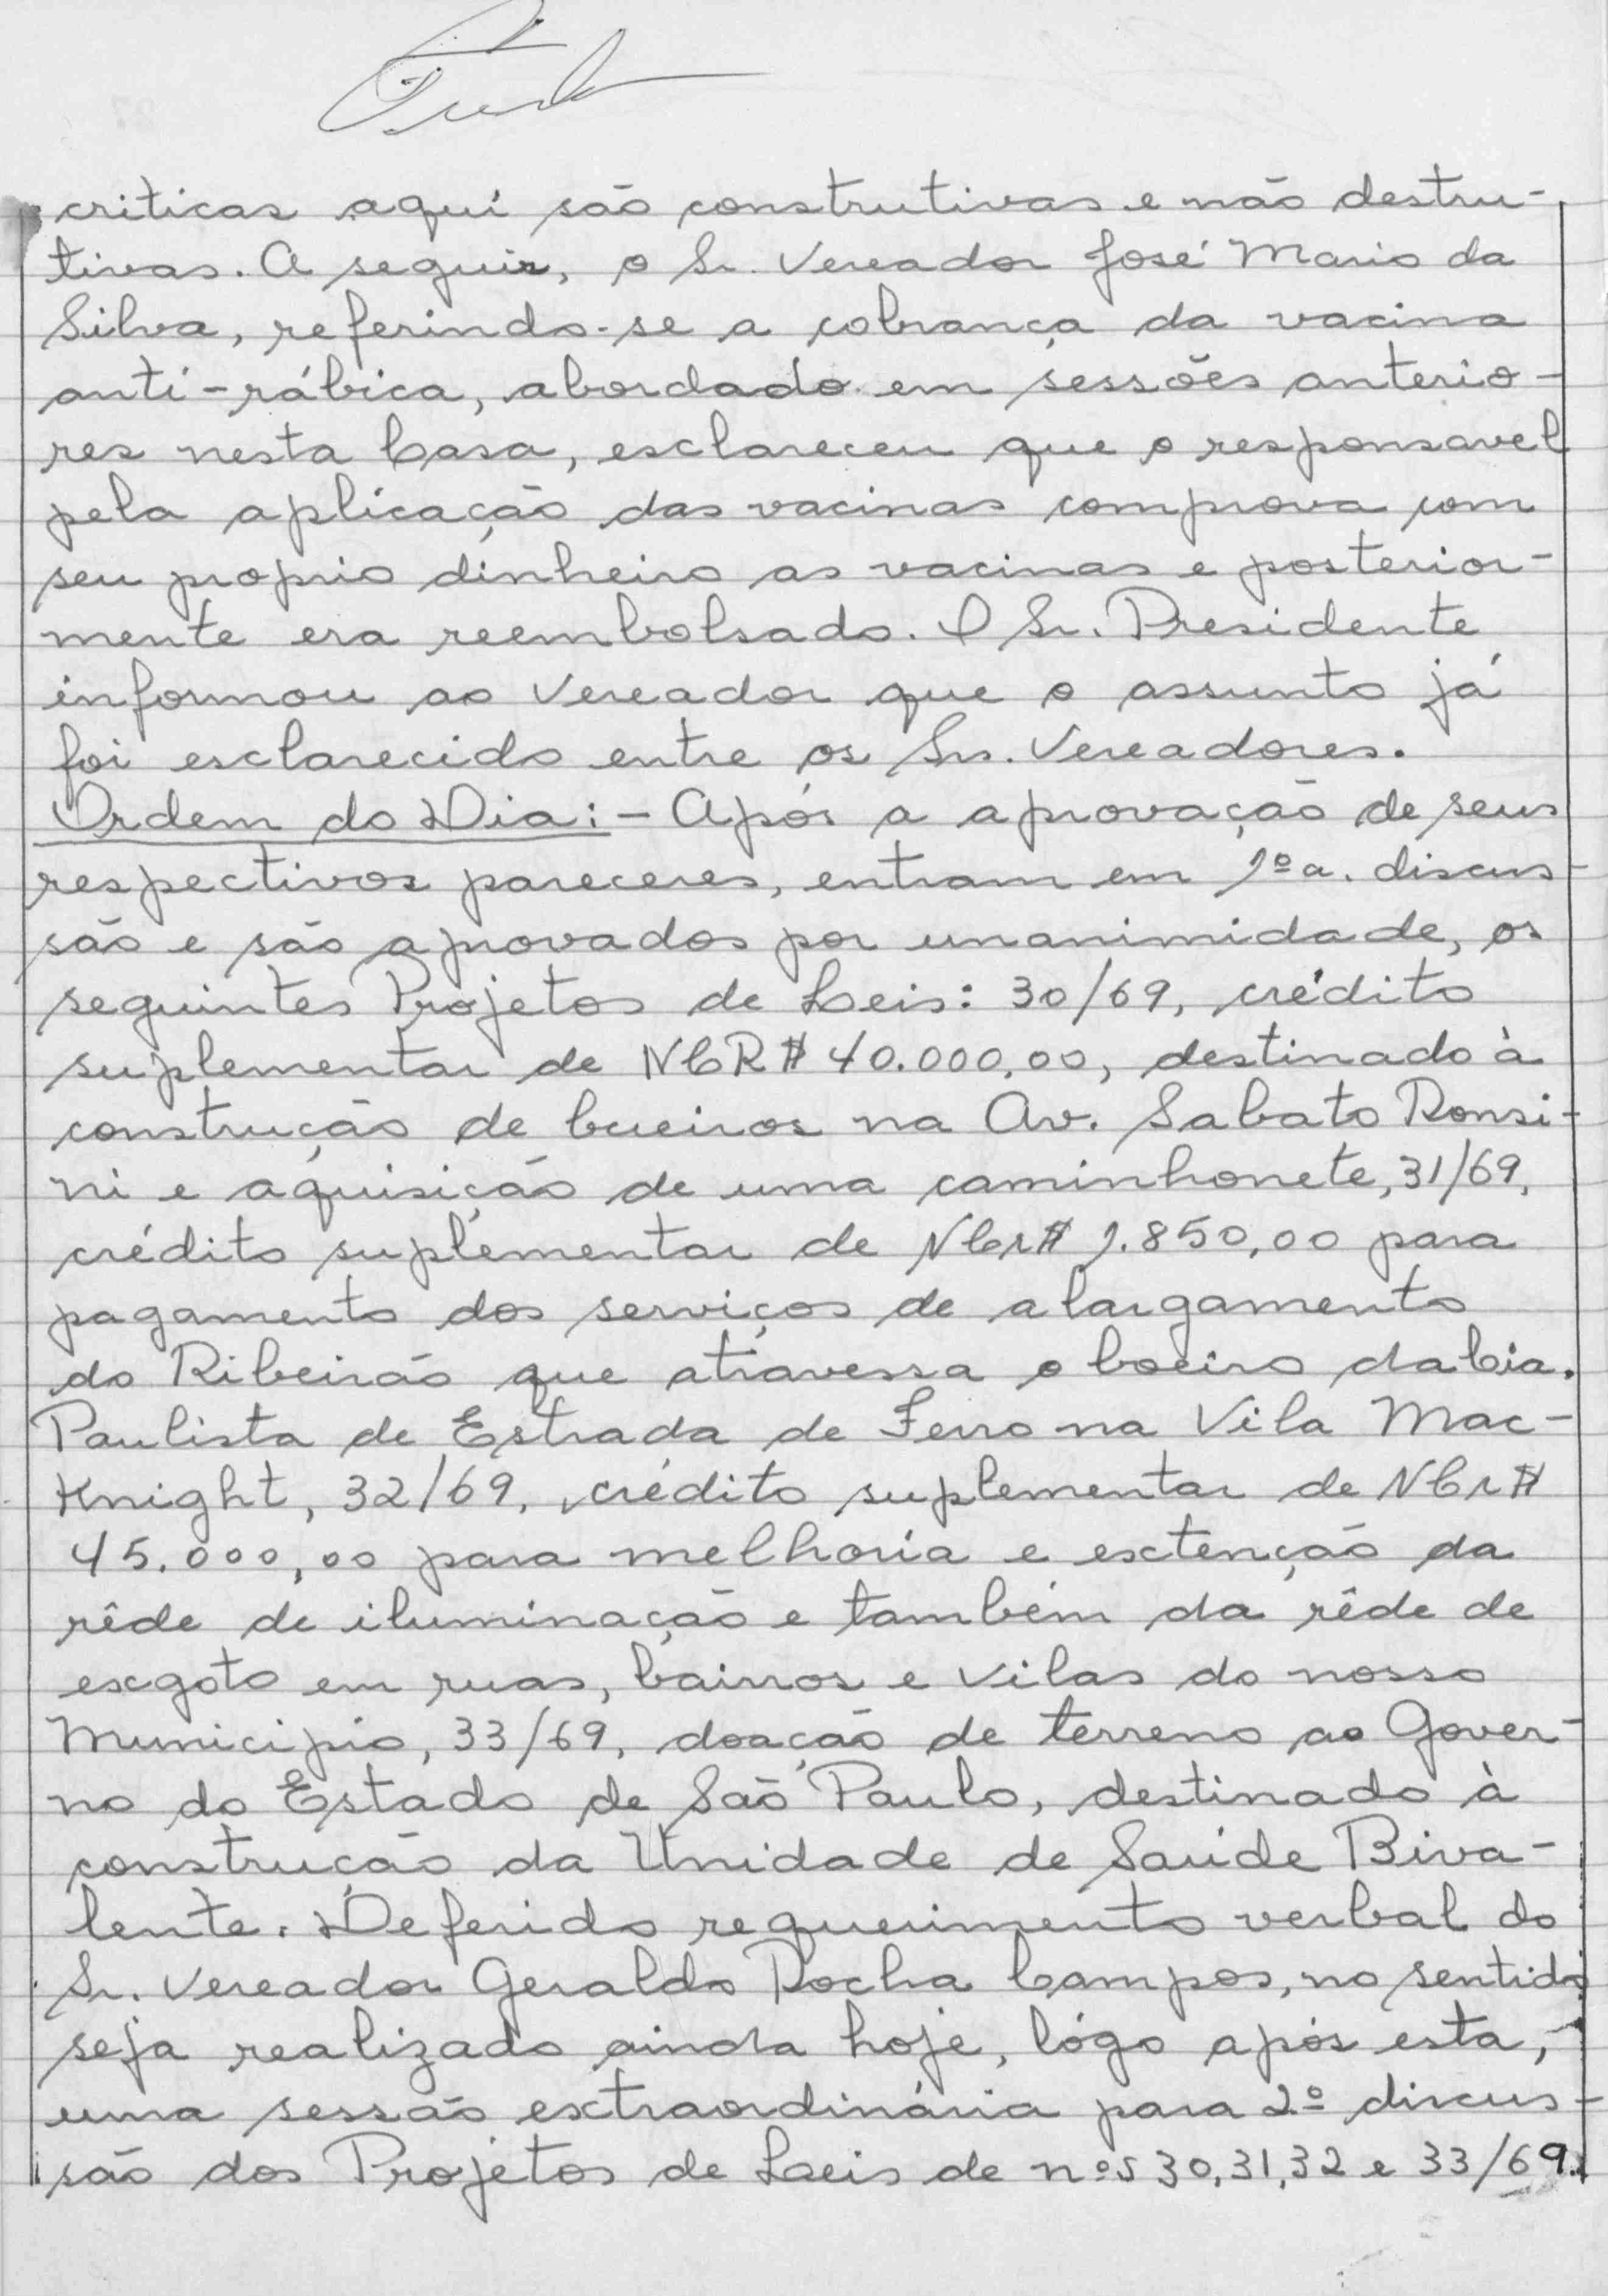 criticas aqui são construtivas e não destru-
tivas. A seguir, o Sr. Vereador José Mario da
Silva, referindo-se a cobrança da vacina
anti-rábica, abordado em sessões anterio-
res nesta Casa, esclareceu que o responsavel
pela aplicação das vacinas comprova com
seu proprio dinheiro as vacinas e posterior-
mente era reembolsado. O Sr. Presidente
informou ao Vereador que o assunto já
foi esclarecido entre os Srs. Vereadores.
Ordem do Dia:- Após a aprovação de seus
respectivos pareceres, entram em 1ºa. discus-
são e são aprovados por unanimidade, os
seguintes Projetos de Leis: 30/69, crédito
suplementar de NCR$ 40.000,00, destinado à
construção de bueiros na Av. Sabato Ronsi-
ni e aquisição de uma caminhonete, 31/69,
crédito suplementar de NCr$ 1.850,00 para
pagamento dos serviços de alargamento
do Ribeirão que atravessa o boeiro da Cia.
Paulista de Estrada de Ferro na Vila Mac-
Knight, 32/69, crédito suplementar de NCr$
45.000,00 para melhoria e extenção da
rêde de iluminação e também da rêde de
exgoto em ruas, bairros e Vilas do nosso
Municipio, 33/69, doação de terreno ao Gover-
no do Estado de São Paulo, destinado à
construção da Unidade de Saúde Biva-
lente. Deferido requerimento verbal do
Sr. Vereador Geraldo Rocha Campos, no sentido
seja realizado ainda hoje, lógo após esta,
uma sessão extraordinária para 2º discus-
são dos Projetos de Leis de nºs 30,31,32 e 33/69.